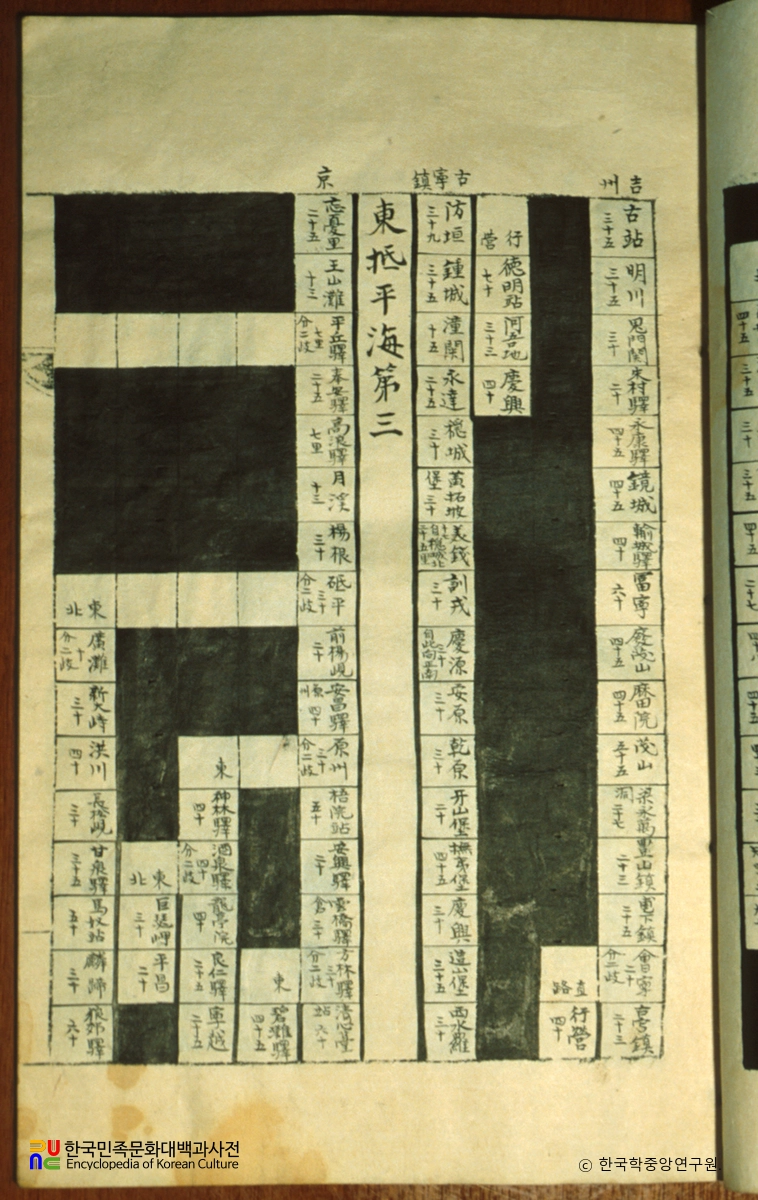 吉州
古站 三十五
明川 三十五
鬼門関 三十
朱村驛 二十
永康驛 四十五
鏡城 四十五
輸城驛 四十
富寧 六十
四十五
麻田院 四十五
茂山 五十五
梁永萬洞 二十七
豊山鎮 二十三
二十五
會寧 二十 分二歧
高嶺鎮 二十三
直路
行營 四十
行營
德明站 七十
阿吾地 三十三
慶興 四十
古寧鎮
防垣 三十九
鍾城 三十五
潼関 十五
永達 二十五
穩城 三十
黃拓坡堡 三十
美錢
訓戎 三十
慶源 二十 自此向正南
安原 三十
乾原 三十
牙山堡 二十
撫夷堡 四十五
慶興 三十
造山堡 三十五
西水羅 三十
東抵平海第三
京
忘憂里 二十五
王山灘 十三
平丘驛 七里 分二歧
奉安驛 二十五
高浪驛 七里
月溪 十三
楊根 三十
砥平 三十 分二歧
前楊峴 二十
安昌驛 原州 四十
原州 三十 分二歧
梧院站 五十
安興驛 二十
雲橋驛 倉 三十
方林驛 三十 分二歧
清心臺站 六十
東
碧灘驛 四十五
東
神林驛 四十
酒泉驛 四十 分二歧
龍亭院 四十
良仁驛 二十五
寧越 二十五
東北
巨瑟岬 三十
平昌 二十
東北
廣灘 十 分二歧
新大峙 三十
洪川 四十
長松峴 三十
甘泉驛 三十五
馬奴站 五十
麟蹄 三十
狼郊驛 六十
한국민족문화대백과사전
Encyclopedia of Korean Culture
© 한국학중앙연구원